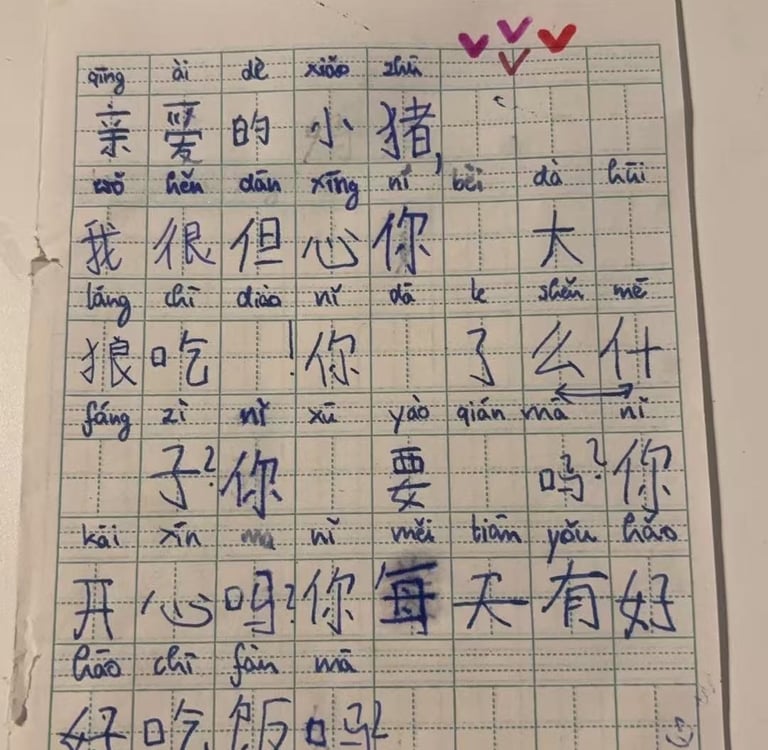 qīng ài dè xiǎo zhū
亲爱的小猪,
wǒ hěn dān xīng nǐ bèi dà hūi
我很但心你 大
láng chī diào nǐ dā le shěn mē
狼吃 !你 了么什
fáng zi nǐ xū yào qián mā nǐ
子?你 要 吗?你
kāi xīn ma nǐ měi tiān yǒu hǎo
开心吗?你每天有好
hǎo chī fàn mā
好吃饭吗?